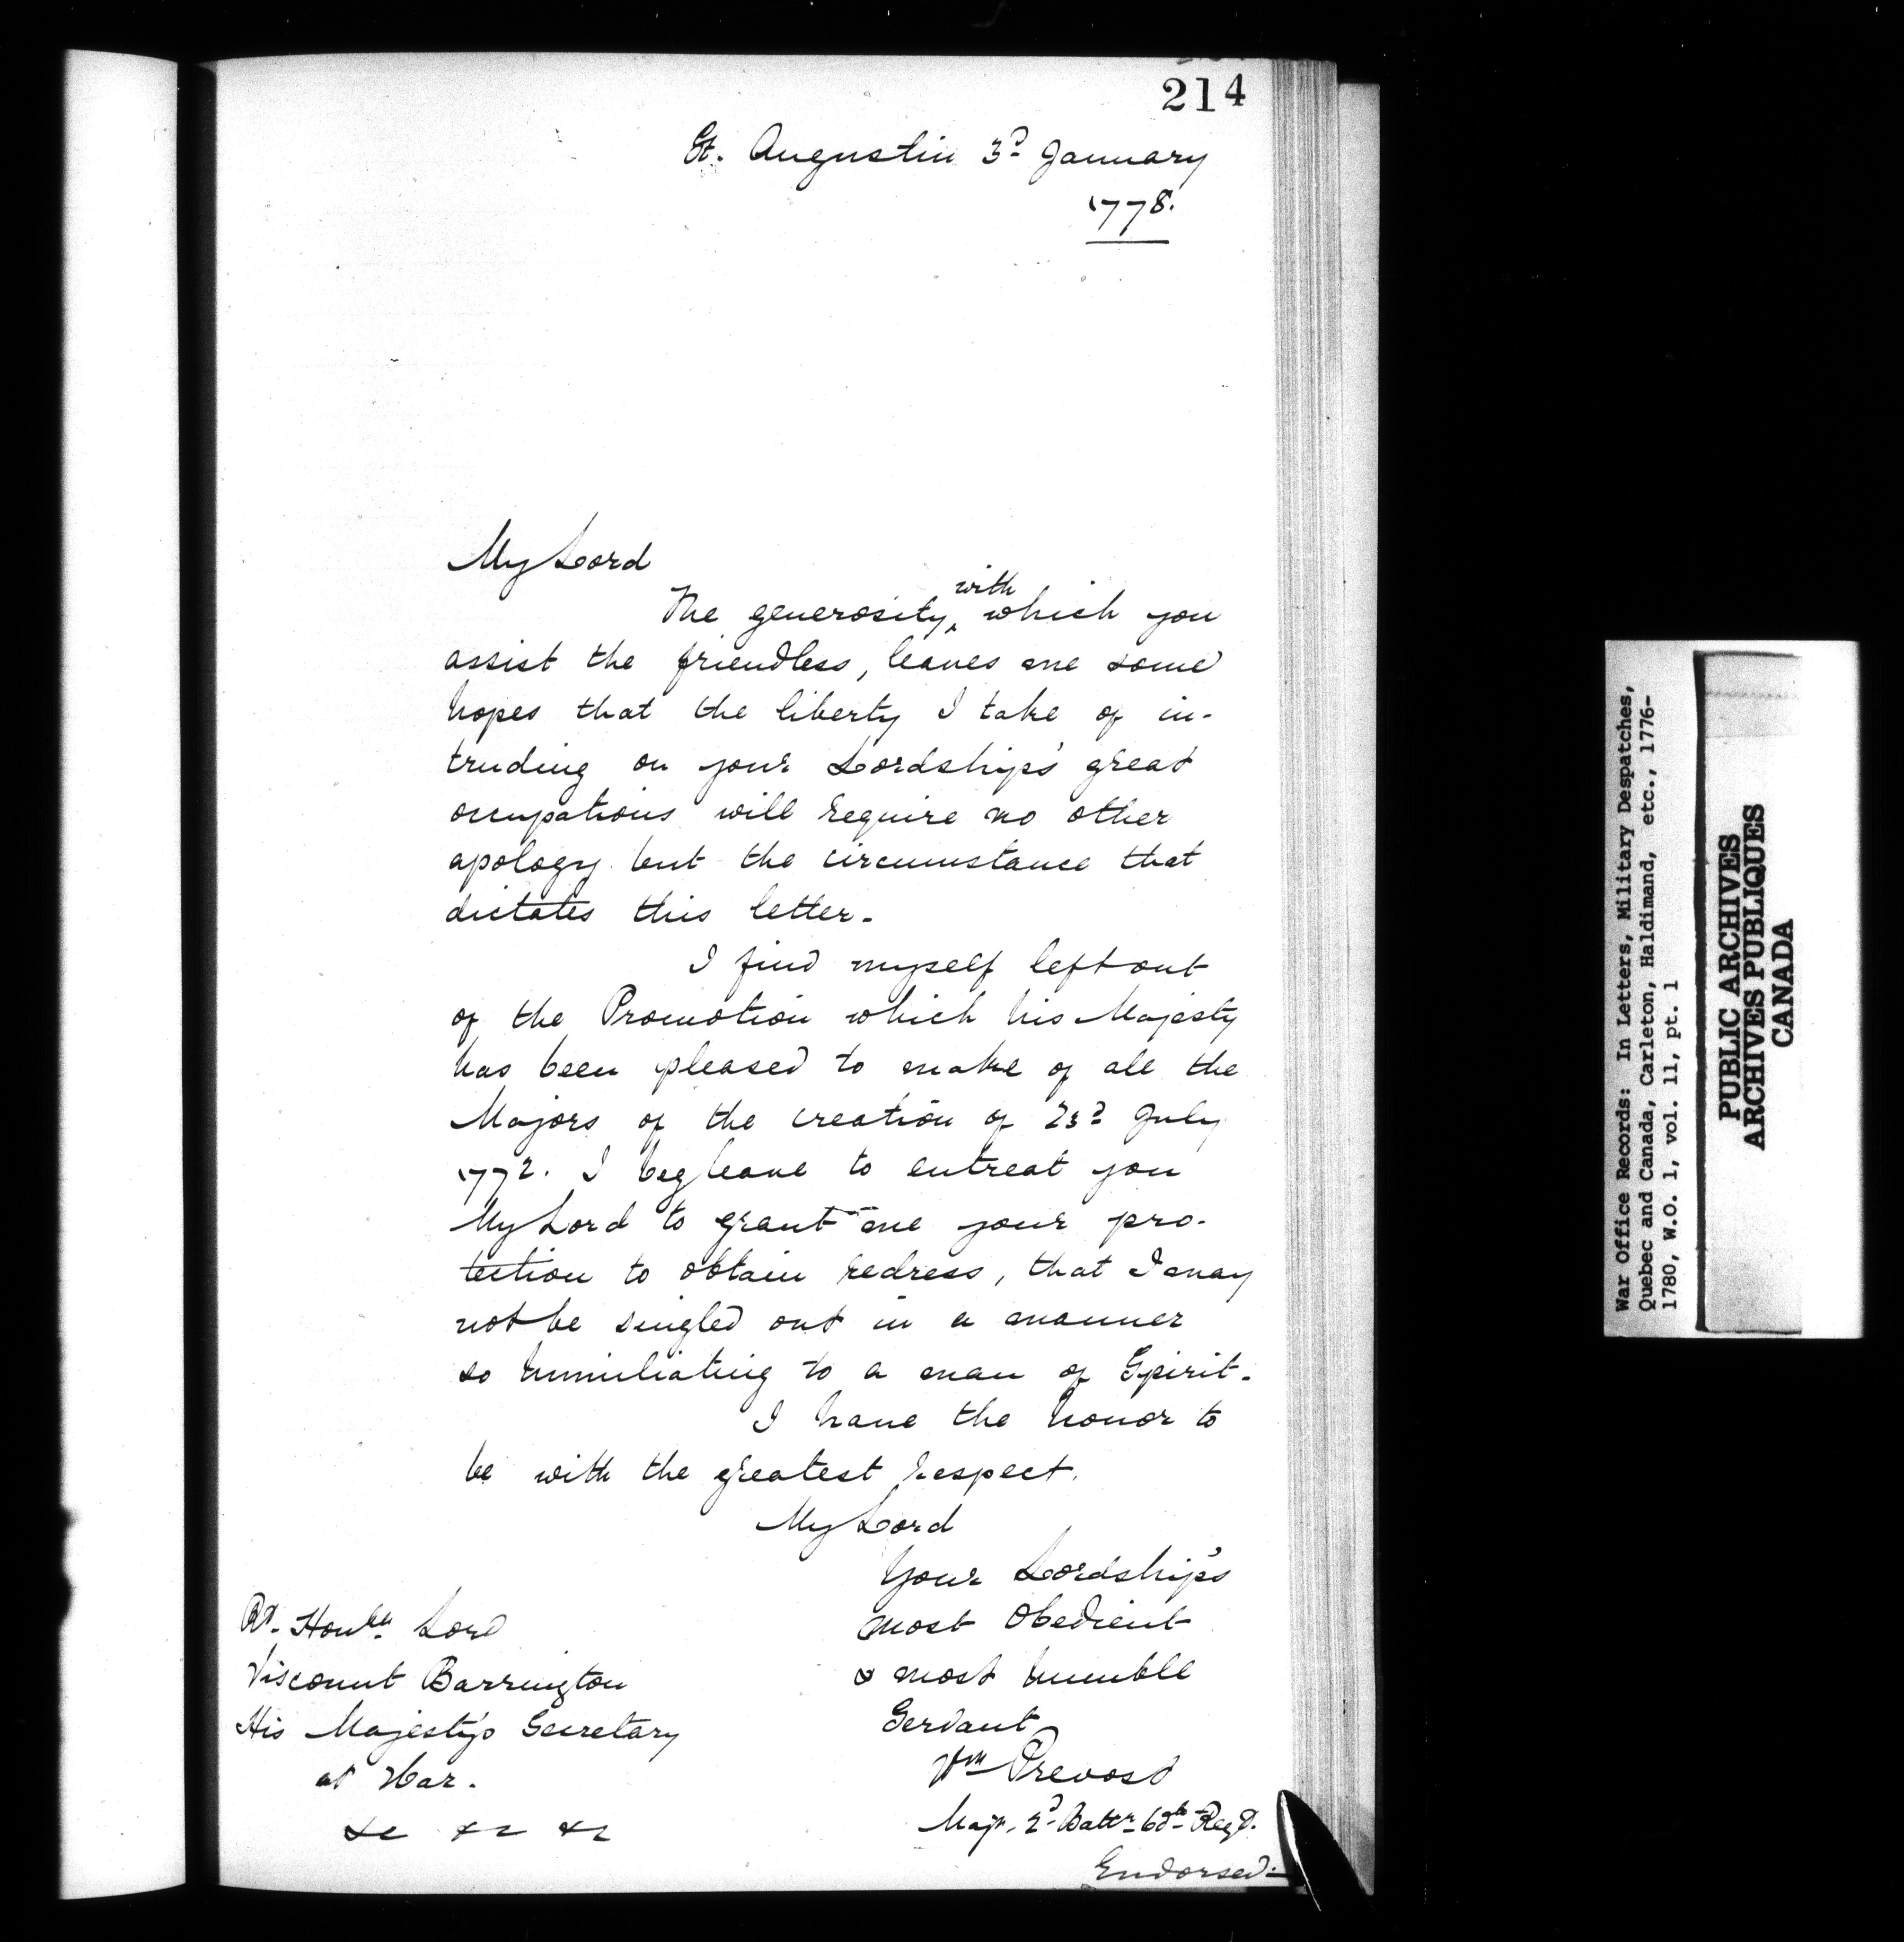 214
St. Augustin 3d January
1778.
My Lord
The generosity, with which you
assist the friendless, leaves me some
hopes that the liberty I take of in-
truding on your Lordship's great
occupations will require no other
apology but the circumstance that
dictates this letter.
I find myself left out
of the Promotion which his Majesty
has been pleased to make of all the
Majors of the creation of 23d July
1772. I beg leave to entreat you
My Lord to grant me your pro-
tection to obtain redress, that I may
not be singled out in a manner
so humiliating to a man of Spirit.
I have the honor to
be with the greatest respect.
My Lord
Your Lordship's
most Obedient
& most humble
Servant
Wm Prevost
Majr. 2d Battn 60th Regt.
Rt. Honble. Lord
Viscount Barrington
His Majesty's Secretary
at War.
&c &c &c
Endorsed:
War Office Records: In Letters, Military Despatches,
Quebec and Canada, Carleton, Haldimand, etc., 1776-
1780, W.O. 1, vol. 11, pt. 1
PUBLIC ARCHIVES
ARCHIVES PUBLIQUES
CANADA